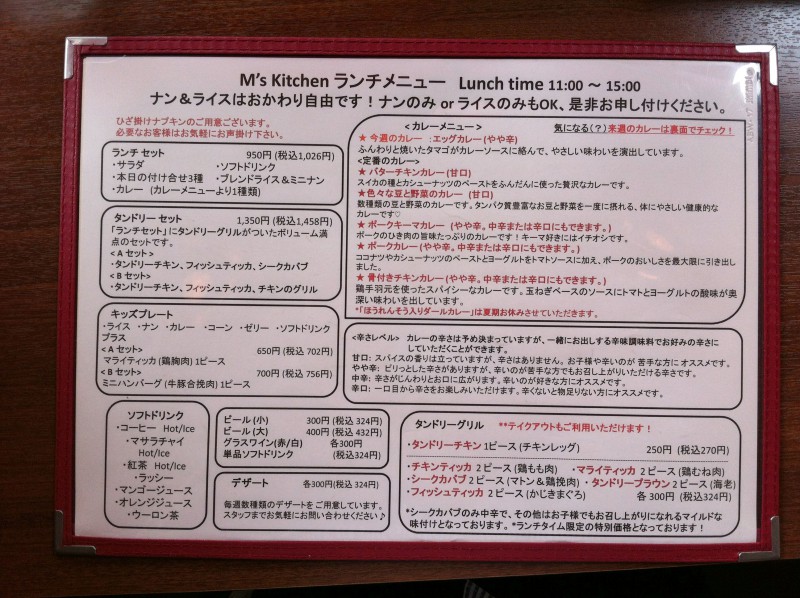 M's Kitchen ランチメニュー Lunch time 11:00 ～ 15:00
ナン＆ライスはおかわり自由です！ナンのみ or ライスのみもOK、是非お申し付けください。
ひざ掛けナプキンのご用意ございます。
必要なお客様はお気軽にお声掛け下さい。
ランチ セット 950円 (税込1,026円)
・サラダ ・ソフトドリンク
・本日の付け合せ3種 ・ブレンドライス＆ミニナン
・カレー (カレーメニューより1種類)
タンドリー セット 1,350円 (税込1,458円)
「ランチセット」にタンドリーグリルがついたボリューム満
点のセットです。
<Ａセット>
・タンドリーチキン、フィッシュティッカ、シークカバブ
<Ｂセット>
・タンドリーチキン、フィッシュティッカ、チキンのグリル
キッズプレート
・ライス ・ナン ・カレー ・コーン ・ゼリー ・ソフトドリンク
プラス
<Ａセット> 650円 (税込 702円)
マライティッカ (鶏胸肉) 1ピース
<Ｂセット> 700円 (税込 756円)
ミニハンバーグ (牛豚合挽肉) 1ピース
ソフトドリンク
・コーヒー Hot/Ice
・マサラチャイ
Hot/Ice
・紅茶 Hot/Ice
・ラッシー
・マンゴージュース
・オレンジジュース
・ウーロン茶
ビール (小) 300円 (税込 324円)
ビール (大) 400円 (税込 432円)
グラスワイン(赤/白) 各300円
単品ソフトドリンク (税込324円)
デザート 各300円(税込 324円)
毎週数種類のデザートをご用意しています。
スタッフまでお気軽にお問い合わせください♪
<カレーメニュー> 気になる(？)来週のカレーは裏面でチェック！
★ 今週のカレー ：エッグカレー (やや辛)
ふんわりと焼いたタマゴがカレーソースに絡んで、やさしい味わいを演出しています。
<定番のカレー>
★ バターチキンカレー (甘口)
スイカの種とカシューナッツのペーストをふんだんに使った贅沢なカレーです。
★色々な豆と野菜のカレー (甘口)
数種類の豆と野菜のカレーです。タンパク質豊富なお豆と野菜を一度に摂れる、体にやさしい健康的な
カレーです♡
★ ポークキーマカレー (やや辛。中辛または辛口にもできます。)
ポークのひき肉の旨味たっぷりのカレーです！キーマ好きにはイチオシです。
★ ポークカレー (やや辛。中辛または辛口にもできます。)
ココナツやカシューナッツのペーストとヨーグルトをトマトソースに加え、ポークのおいしさを最大限に引き出し
ました。
★ 骨付きチキンカレー (やや辛。中辛または辛口にもできます。)
鶏手羽元を使ったスパイシーなカレーです。玉ねぎベースのソースにトマトとヨーグルトの酸味が奥
深い味わいを出しています。
*「ほうれんそう入りダールカレー」は夏期お休みさせていただきます。
<辛さレベル> カレーの辛さは予め決まっていますが、一緒にお出しする辛味調味料でお好みの辛さに
していただくことができます。
甘口: スパイスの香りは立っていますが、辛さはありません。お子様や辛いのが 苦手な方に オススメです。
やや辛: ピリっとした辛さがありますが、辛いのが苦手な方でもお召し上がりいただける辛さです。
中辛: 辛さがじんわりとお口に広がります。辛いのが好きな方にオススメです。
辛口: 一口目から辛さをお楽しみいただけます。辛くないと物足りない方にオススメです。
タンドリーグリル **テイクアウトもご利用いただけます！
・タンドリーチキン 1ピース (チキンレッグ) 250円 (税込270円)
・チキンティッカ 2ピース (鶏もも肉) ・マライティッカ 2ピース (鶏むね肉)
・シークカバブ 2ピース (マトン＆鶏挽肉) ・タンドリープラウン 2ピース (海老)
・フィッシュティッカ 2ピース (かじきまぐろ) 各 300円 (税込324円)
*シークカバブのみ中辛で、その他はお子様でもお召し上がりになれるマイルドな
味付けとなっております。 *ランチタイム限定の特別価格となっております！